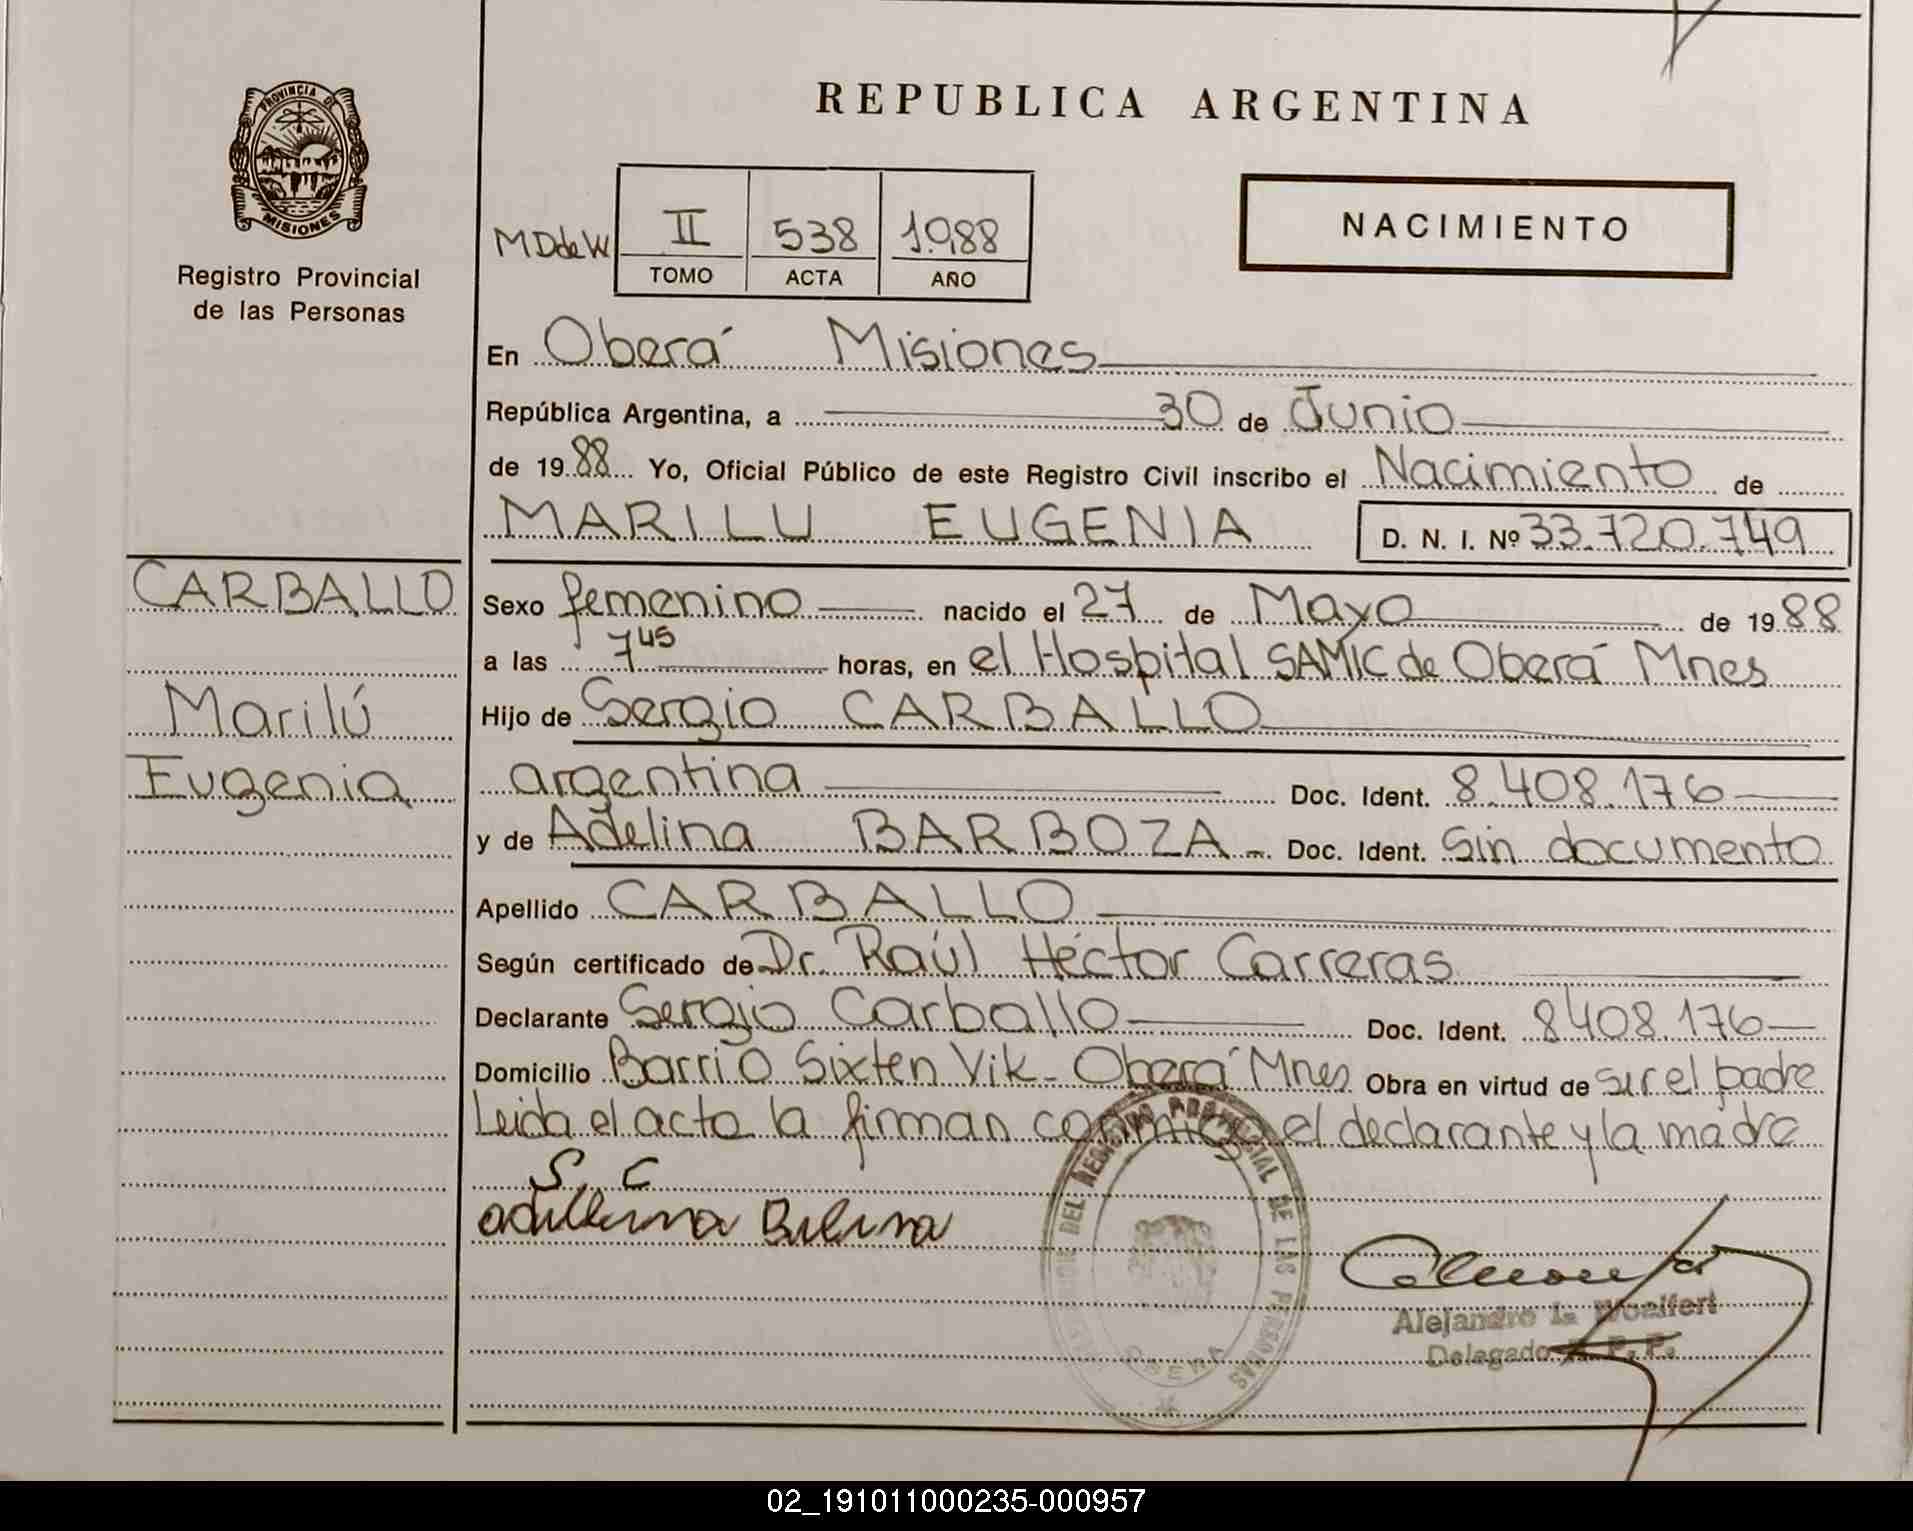 PROVINCIA DE
MISIONES
Registro Provincial
de las Personas
REPUBLICA ARGENTINA
NACIMIENTO
MDdeW II 538 1988
TOMO ACTA AÑO
En Oberá Misiones
República Argentina, a 30 de Junio
de 1988 Yo, Oficial Público de este Registro Civil inscribo el Nacimiento de
MARILU EUGENIA D. N. I. Nº 33.720.749
CARBALLO
Marilú
Eugenia
Sexo femenino nacido el 27 de Mayo de 1988
a las 7 45 horas, en el Hospital SAMIC de Oberá Mnes
Hijo de Sergio CARBALLO
argentina Doc. Ident. 8.408.176
y de Adelina BARBOZA Doc. Ident. Sin documento
Apellido CARBALLO
Según certificado de Dr. Raúl Héctor Carreras
Declarante Sergio Carballo Doc. Ident. 8408.176
Domicilio Barrio Sixten Vik - Oberá Mnes Obra en virtud de ser el padre
Leida el acta la firman conmigo el declarante y la madre
S. C
DEL REGISTRO PROVINCIAL DE LAS PERSONAS
OBERA
Alejandro L. Woelfert
Delegado R. P. P.
02_191011000235-000957